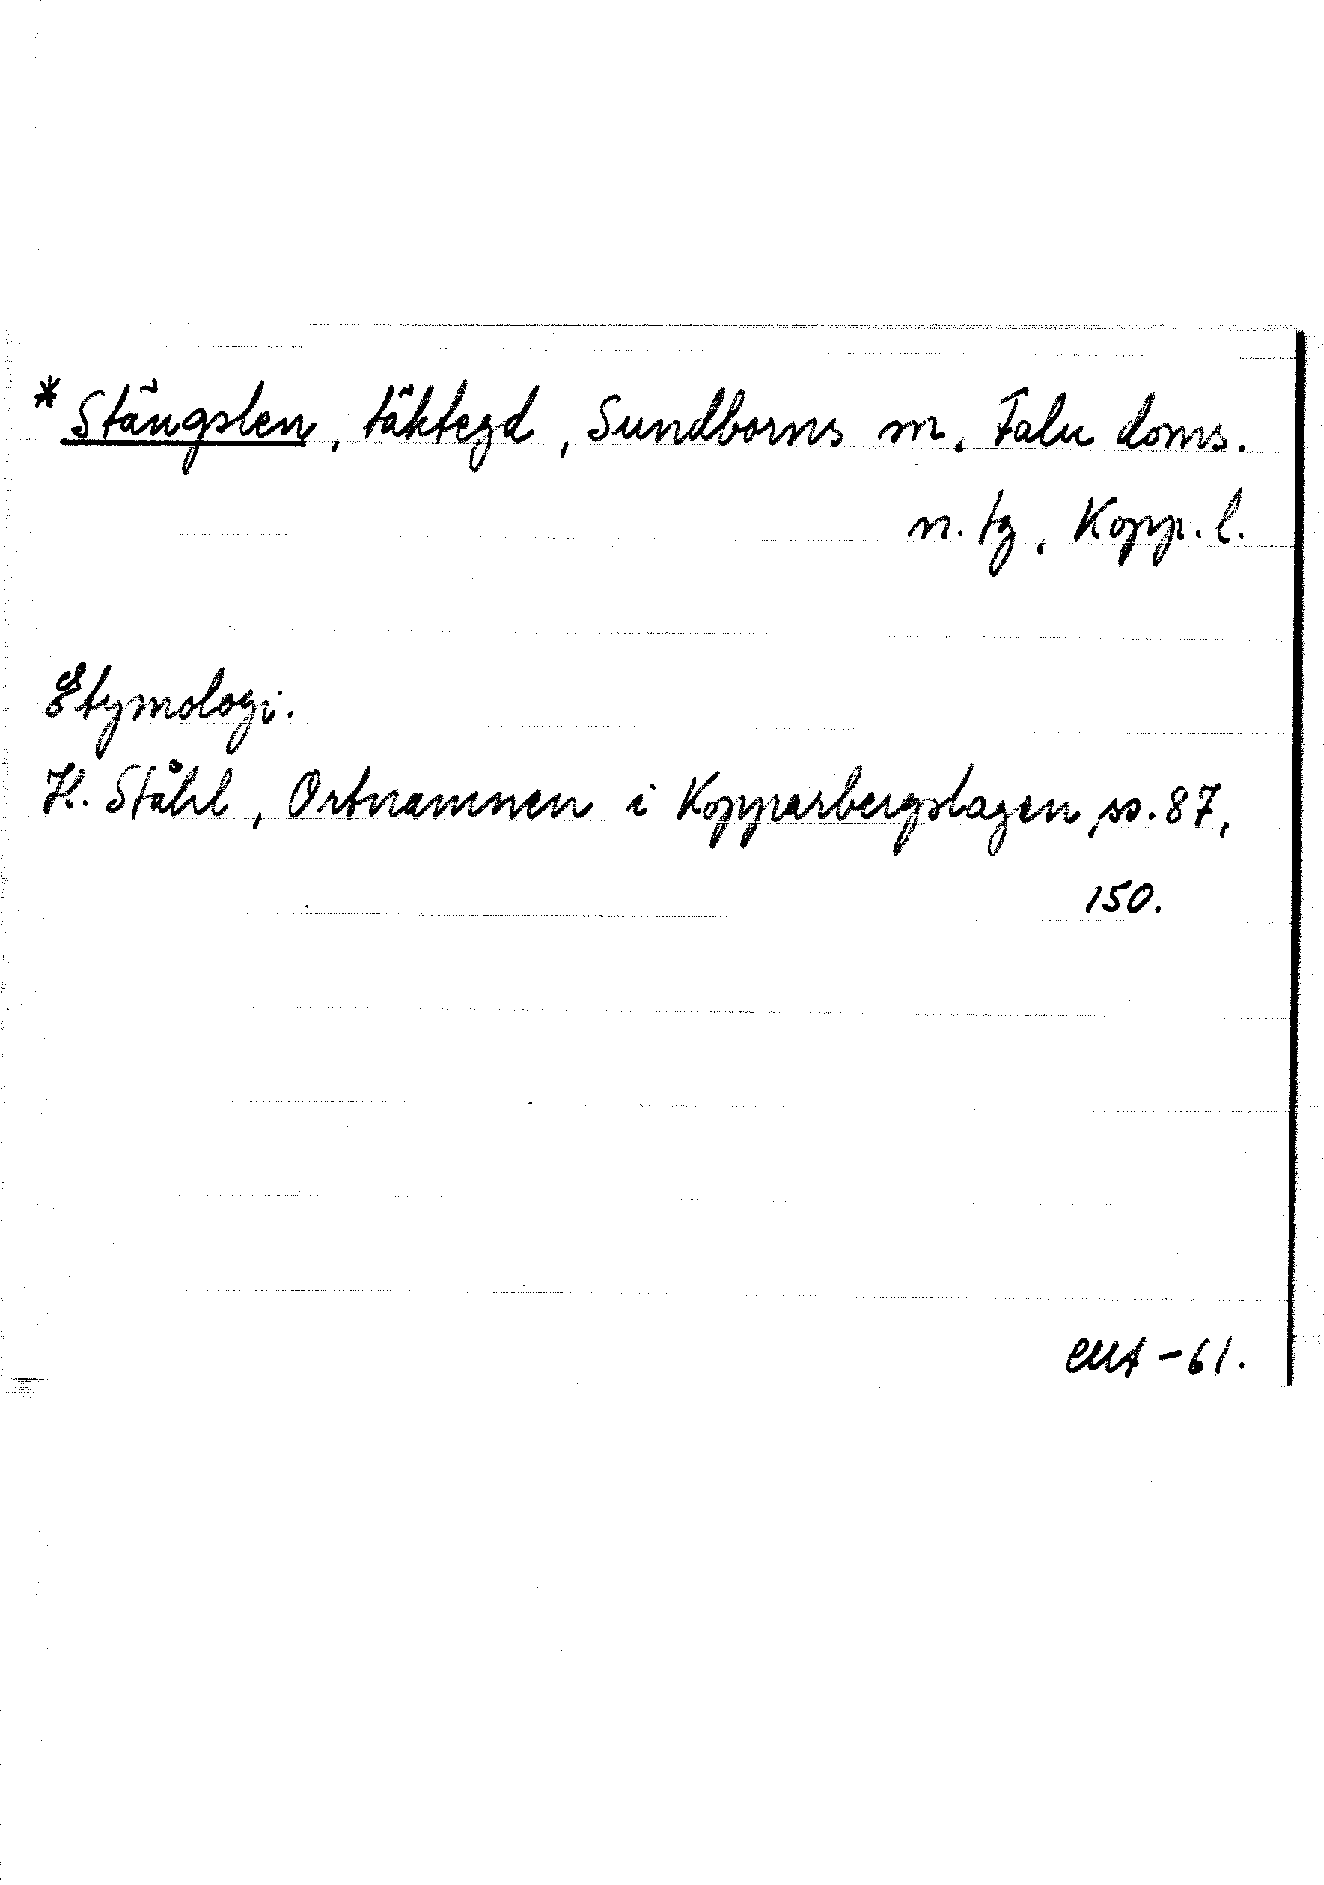 * Stängslen, täktegd, Sundborns sn, Falu doms.
n. tg, Kopp. l.
Etymologi.
H. Ståhl, Ortnamnen i Kopparbergslagen ss. 87,
150.
-61.